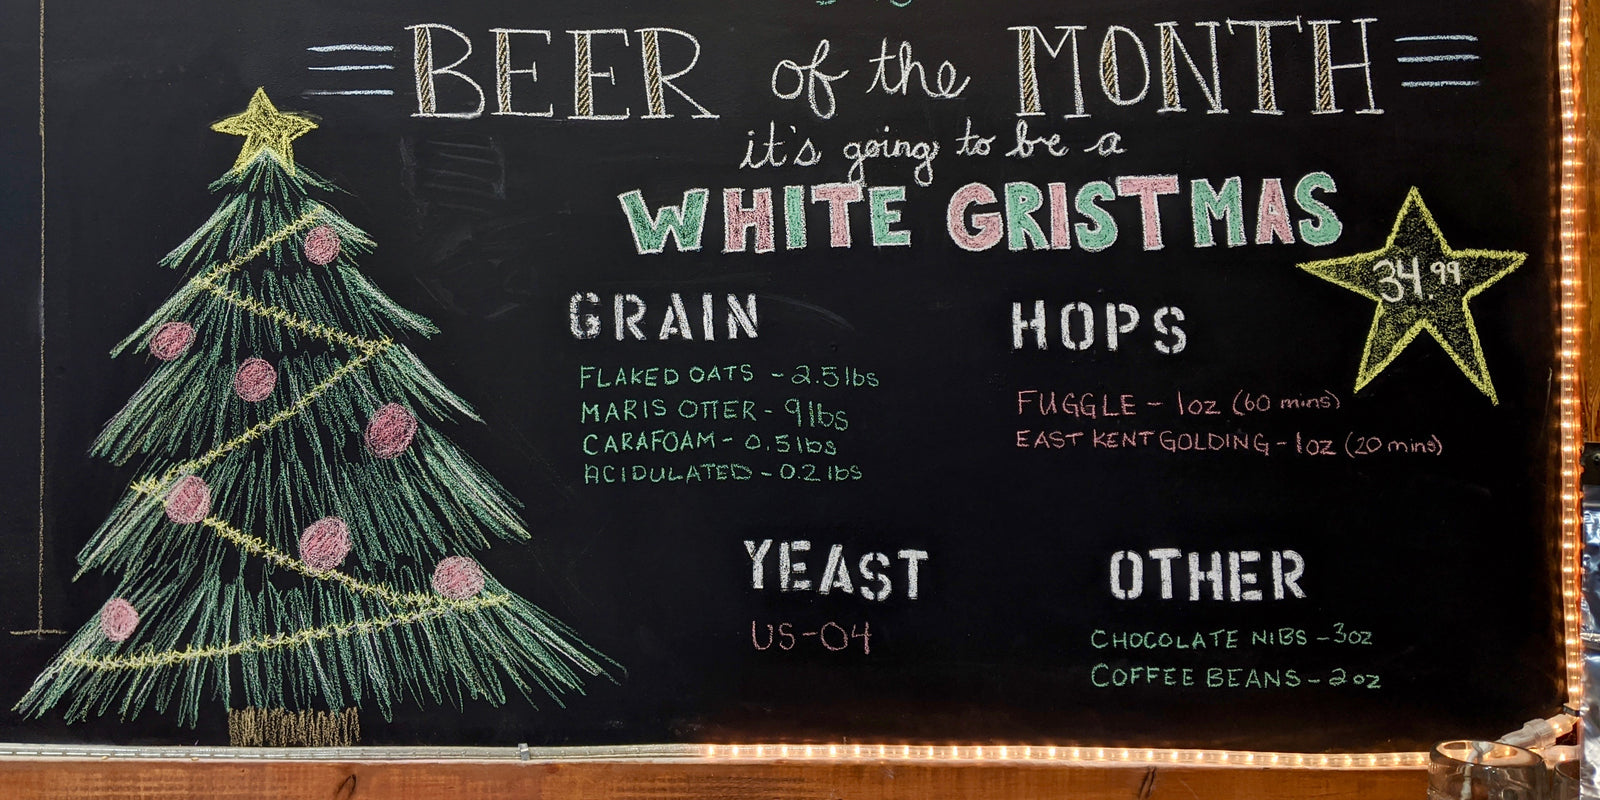 BEER of the MONTH
it's going to be a
WHITE GRISTMAS
34.99
GRAIN
FLAKED OATS - 2.5 lbs
MARIS OTTER - 9 lbs
CARAFOAM - 0.5 lbs
ACIDULATED - 0.2 lbs
HOPS
FUGGLE - 1oz (60 mins)
EAST KENT GOLDING - 1oz (20 mins)
YEAST
US-04
OTHER
CHOCOLATE NIBS - 3oz
COFFEE BEANS - 2oz